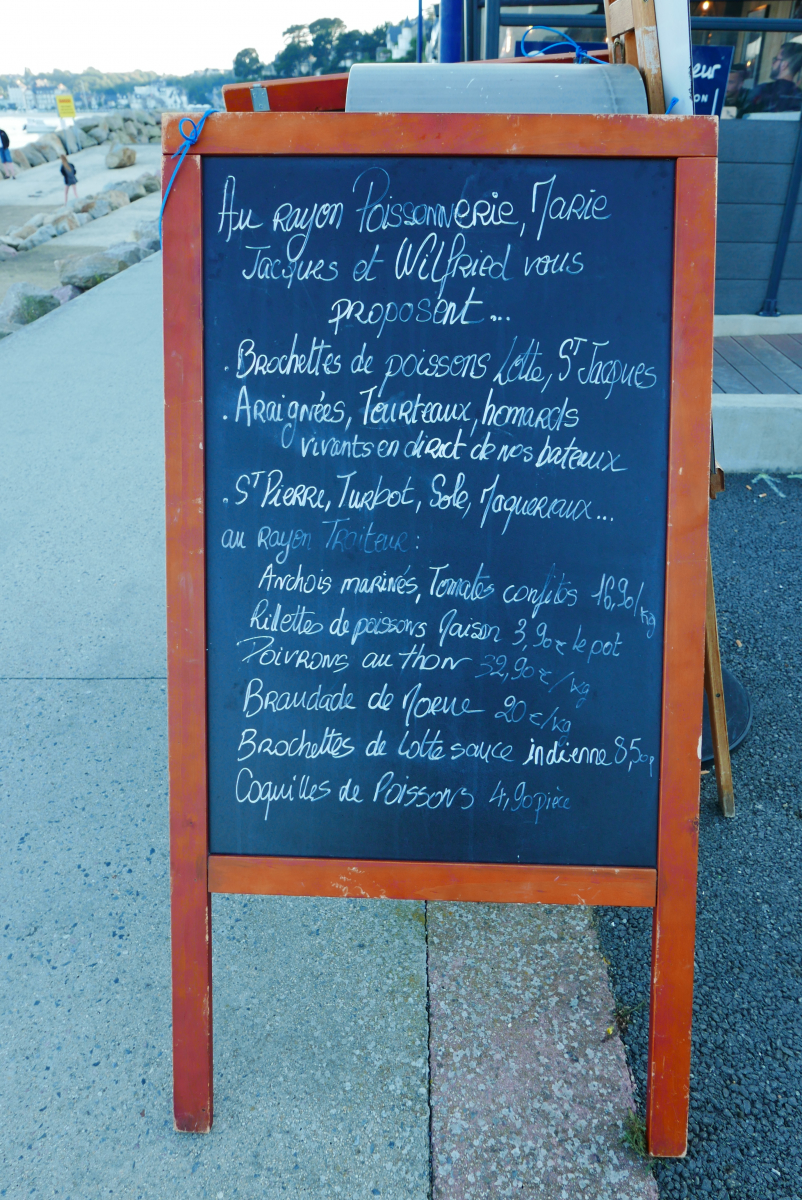 eur
ON !
Au rayon Poissonnerie, Marie
Jacques et Wilfried vous
proposent...
. Brochettes de poissons Lotte, ST Jacques
. Araignées, Tourteaux, homards
vivants en direct de nos bateaux
. ST Pierre, Turbot, Sole, Maquereaux...
au rayon Traiteur :
Anchois marinés, Tomates confites 16,90/kg
Rillettes de poissons Maison 3,90€ le pot
Poivrons au thon 32,90€/kg
Brandade de Morue 20€/kg
Brochettes de Lotte sauce indienne 8,50p
Coquilles de Poissons 4,90pièce